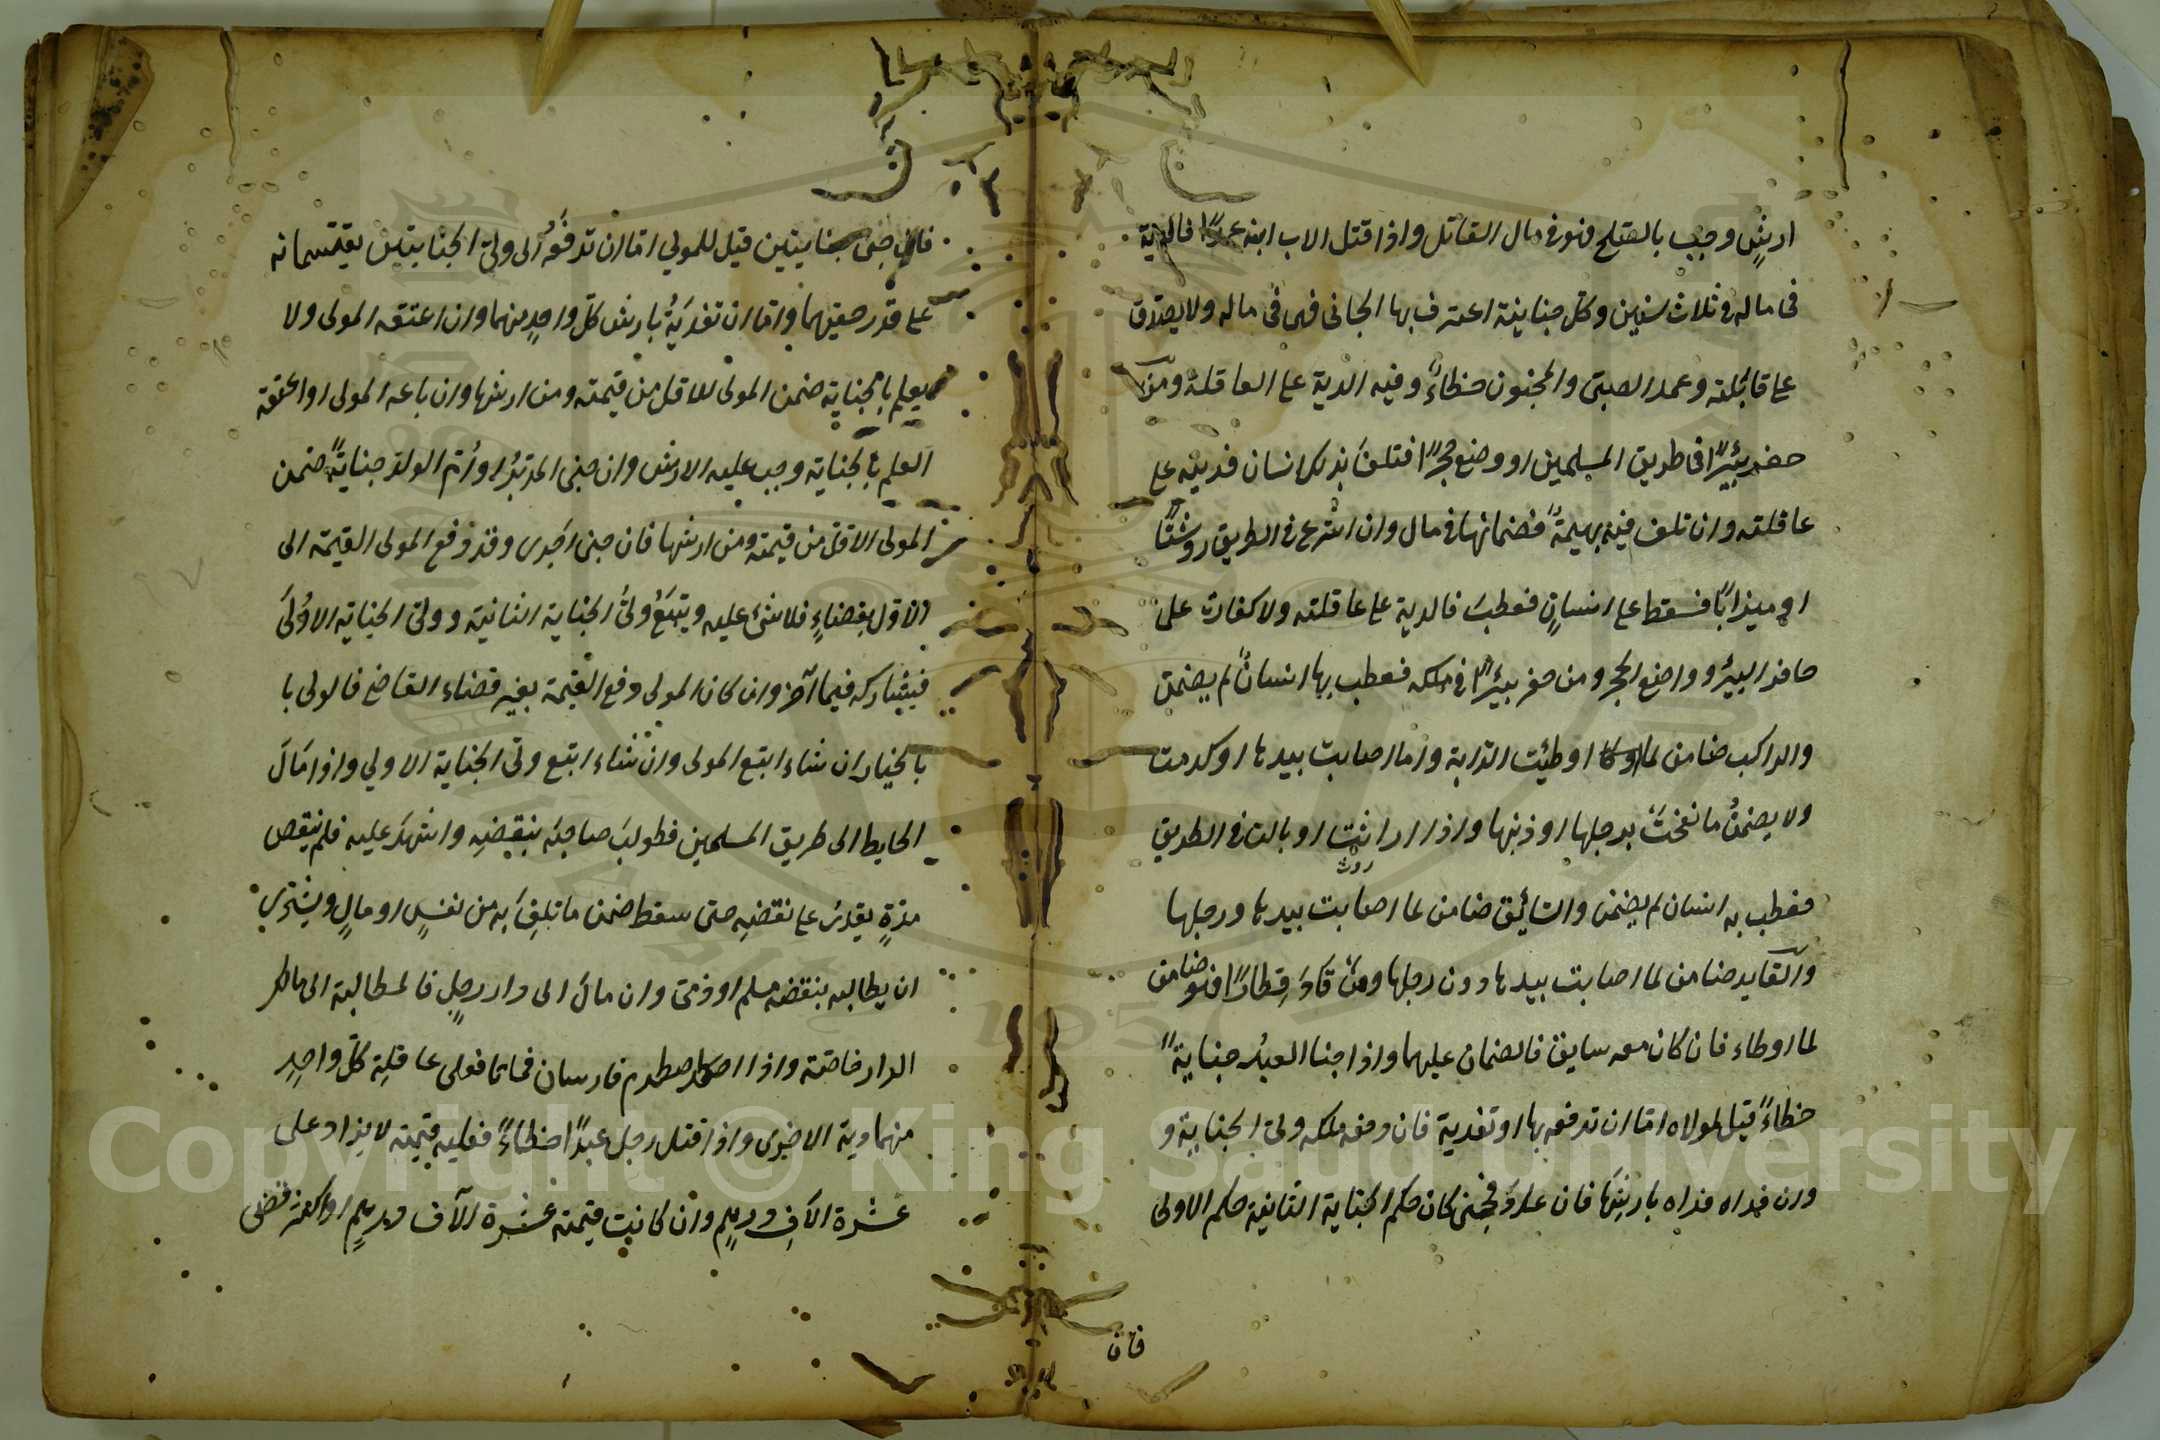 ارش وجب بالصلح فهو في مال القاتل واذا قتل الاب ابنه عمدًا فالدية
فى ماله في ثلاث سنين وكل جناية اعترف بها الجانى فهى فى ماله ولا يصدق
على عاقلته وعمد الصبى والمجنون خطاءً وفيه الدية على العاقلة ومن
حفر بئيرًا فى طريق المسلمين او وضع حجرًا فتلف بذلك انسان فديته على
عاقلته وان تلف فيه بهيمةً فضمانها في مال وان اشرع في الطريق روشنًا
او ميزابًا فسقط على انسانٍ فعطب فالدية على عاقلته ولا كفارت على
حافر البئر وواضع الحجر ومن حفر بيئرًا في ملكه فعطب بها انسانٌ لم يضمن
والراكب ضامن لما اوطئت الدابة وما اصابت بيدها او كدمت
ولا يضمنُ ما نفحت برجلها او ذنبها واذا راثت او بالت في الطريق
روث
فعطب به انسان لم يضمن والسائق ضامن لما اصابت بيدها ورجلها
والقايد ضامن لما اصابت بيدها دون رجلها ومن قادَ قِطارًا فهو ضامن
لما اوطاء فان كان معه سايق فالضمان عليهما واذا جنا العبد جنايةً
خطاءً قيل لمولاه اما ان تدفعه بها او تفدية فان دفعه ملكه ولى الجناية و
وان فداه فداه بارشِها فان عاد فجنى كان حكم الجناية الثانية حكم الاولى
فان
فان جنى جنايتين قيل للمولي اما ان تدفَعُه الى ولى الجنايتين يقتسمانه
على قدر حقيهما واما ان تفديَهُ بارش كل واحدٍ منهما وان اعتقه المولى ولا
يعلم بالجناية ضمن المولى الاقل من قيمته ومن ارشها وان باعه المولى او اعتقه
العلم بالجناية وجب عليه الارش وان جنى المدبرُ او اُم الولد جنايةً ضمن
المولى الاقل من قيمته ومن ارشها فان جنى اخرى وقد دفع المولى القيمة الى
الاول بقضاءٍ فلا شئ عليه ويتبَعُ ولىُ الجناية الثانية وولى الجناية الاوُلى
فيشاركه فيما اخذ وان كان المولى دفع القيمة بغير قضاء القاضي فالولى با
بالخيار ان شاء ابتع المولى وان شاء ابتع ولى الجناية الاولي واذا مَالَ
الحايط الى طريق المسلمين فطولبَ صاحبَه بنقضِه واشهدَ عليه فلم ينقص
مدةٍ يقدر على نقضِه حتى سقط ضمن ما تلِفَ به من نفسٍ او مالٍ ويستوي
ان يطالبه بنقضه مسلم او ذمى وان مالَ الى دار رجلٍ فالمطالبة الى مالك
الدار خاصة واذا اصطدم فارسان فماتا فعلى عاقلة كل واحدٍ
منهما دية الاخرى واذا قتل رجل عبدًا خطاءً فعليه قيمته لا يزاد على
عشرة الآفِ درهم وان كانت قيمته عشرة الآف درهمٍ او اكثر قضى